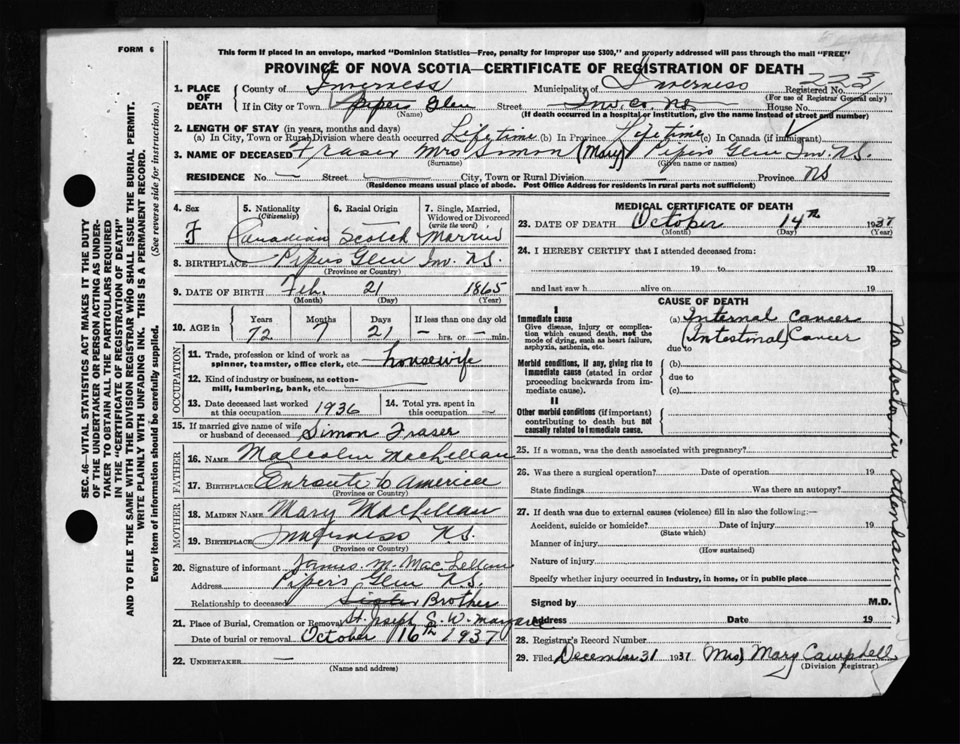 FORM 6
This form if placed in an envelope, marked "Dominion Statistics—Free, penalty for improper use $300," and properly addressed will pass through the mail "FREE"
PROVINCE OF NOVA SCOTIA—CERTIFICATE OF REGISTRATION OF DEATH
SEC. 46—VITAL STATISTICS ACT MAKES IT THE DUTY
OF THE UNDERTAKER OR PERSON ACTING AS UNDER-
TAKER TO OBTAIN ALL THE PARTICULARS REQUIRED
IN THE "CERTIFICATE OF REGISTRATION OF DEATH"
AND TO FILE THE SAME WITH THE DIVISION REGISTRAR WHO SHALL ISSUE THE BURIAL PERMIT.
WRITE PLAINLY WITH UNFADING INK. THIS IS A PERMANENT RECORD.
Every item of information should be carefully supplied. (See reverse side for instructions.)
1. PLACE OF DEATH County of Inverness Municipality of Inverness Registered No. 223
(For use of Registrar General only)
If in City or Town Pipers Glen Street Inv. Co. N.S. House No.
(Name) (If death occurred in a hospital or institution, give the name instead of street and number)
2. LENGTH OF STAY (in years, months and days)
(a) In City, Town or Rural Division where death occurred Lifetime (b) In Province Lifetime (c) In Canada (if immigrant)
3. NAME OF DECEASED Fraser Mrs Simon (Mary) Pipers Glen Inv. N.S.
(Surname) (Given name or names)
RESIDENCE No. — Street City, Town or Rural Division Province NS
(Residence means usual place of abode. Post Office Address for residents in rural parts not sufficient)
4. Sex F
5. Nationality (Citizenship) Canadian
6. Racial Origin Scotch
7. Single, Married, Widowed or Divorced (write the word) Married
8. BIRTHPLACE Pipers Glen Inv. N.S.
(Province or Country)
9. DATE OF BIRTH Feb. 21 1865
(Month) (Day) (Year)
10. AGE in Years Months Days If less than one day old
72 7 21 — hrs. or — min.
OCCUPATION
11. Trade, profession or kind of work as spinner, teamster, office clerk, etc. housewife
12. Kind of industry or business, as cotton-mill, lumbering, bank, etc.
13. Date deceased last worked at this occupation 1936
14. Total yrs. spent in this occupation —
15. If married give name of wife or husband of deceased Simon Fraser
FATHER
16. NAME Malcolm MacLellan
17. BIRTHPLACE Enroute to America
(Province or Country)
MOTHER
18. MAIDEN NAME Mary MacLellan
19. BIRTHPLACE Inverness N.S.
(Province or Country)
20. Signature of informant James. M. MacLellan
Address Piper's Glen N.S.
Relationship to deceased Sister Brother
21. Place of Burial, Cremation or Removal St. Joseph S. W. Margaree
Date of burial or removal October 16th 1937
22. UNDERTAKER —
(Name and address)
MEDICAL CERTIFICATE OF DEATH
23. DATE OF DEATH October 14th 1937
(Month) (Day) (Year)
24. I HEREBY CERTIFY that I attended deceased from:
19 to 19
and last saw h alive on 19
CAUSE OF DEATH
I
Immediate cause
Give disease, injury or complication which caused death, not the mode of dying, such as heart failure, asphyxia, asthenia, etc.
(a) Internal Cancer
(Intestinal) Cancer
due to
Morbid conditions, if any, giving rise to immediate cause (stated in order proceeding backwards from immediate cause).
(b)
due to
(c)
II
Other morbid conditions (if important) contributing to death but not causally related to immediate cause.
25. If a woman, was the death associated with pregnancy?
26. Was there a surgical operation? Date of operation 19
State findings Was there an autopsy?
27. If death was due to external causes (violence) fill in also the following:—
Accident, suicide or homicide? Date of injury 19
(State which)
Manner of injury
(How sustained)
Nature of injury
Specify whether injury occurred in industry, in home, or in public place
Signed by M.D.
Address Date 19
28. Registrar's Record Number
29. Filed December 31 1937 (Mrs) Mary Campbell
(Division Registrar)
No doctor in attendance